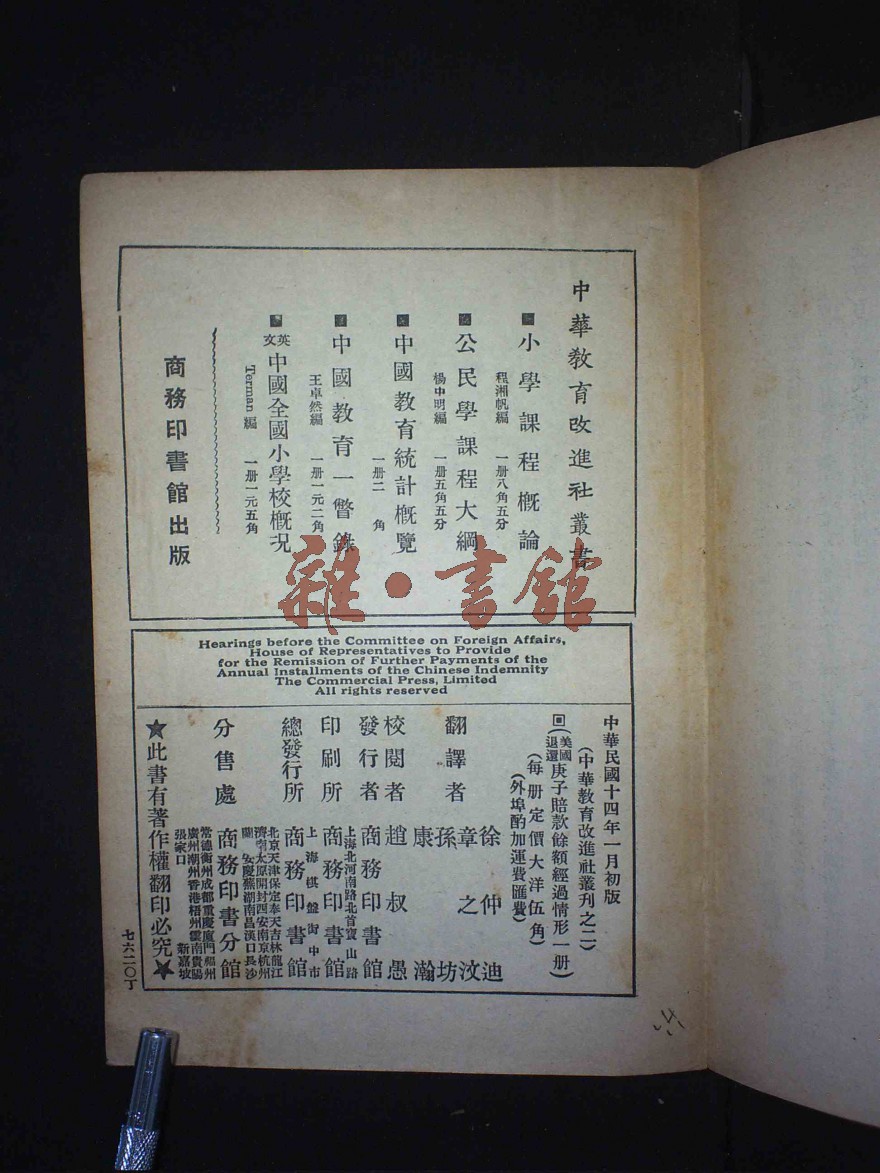 中華教育改進社叢書
小學課程概論
程湘帆編 一册八角五分
公民學課程大綱
楊中明編 一册五角五分
中國教育統計概覽
一册二角
中國教育一瞥錄
王卓然編 一册一元二角
英文中國全國小學校概况
Terman 編 一册一元五角
商務印書館出版
雜·書館
Hearings before the Committee on Foreign Affairs,
House of Representatives to Provide
for the Remission of Further Payments of the
Annual Installments of the Chinese Indemnity
The Commercial Press, Limited
All rights reserved
中華民國十四年一月初版
(中華教育改進社叢刊之二)
(美國退還庚子賠款餘額經過情形一册)
(每册定價大洋伍角)
(外埠酌加運費匯費)
翻譯者 徐仲迪 章之汶 孫坊 康瀚
校閱者 趙叔愚
發行者 商務印書館
印刷所 上海北河南路北首寶山路 商務印書館
總發行所 上海棋盤街中市 商務印書館
分售處 商務印書分館
北京天津保定奉天吉林龍江
濟南太原開封西安南京杭州
蘭谿安慶蕪湖南昌漢口長沙
常德衡州成都重慶廈門福州
廣州潮州香港梧州雲南貴陽
張家口 新嘉坡
★此書有著作權翻印必究★
七六二〇丁